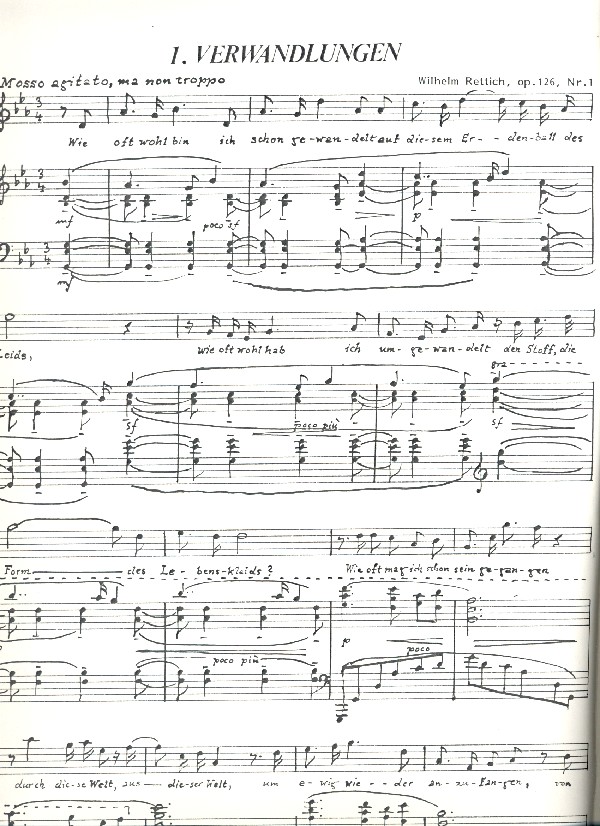 1. VERWANDLUNGEN
Mosso agitato, ma non troppo
Wilhelm Rettich, op.126, Nr.1
3
4
Wie oft wohl bin ich schon ge-wan-delt auf die-sem Er--den-ball des
3
4
mf
poco sf
p
3
4
mf
Leids,
wie oft wohl hab ich um-ge-wan-delt den Stoff, die
8va
sf
poco più
sf
Form des Le-bens-kleids? Wie oft mag ich schon sein ge-gan-gen
p
poco
poco più
durch die-se Welt, aus die-ser Welt, um e-wig wie--der an-zu-fan-gen, von